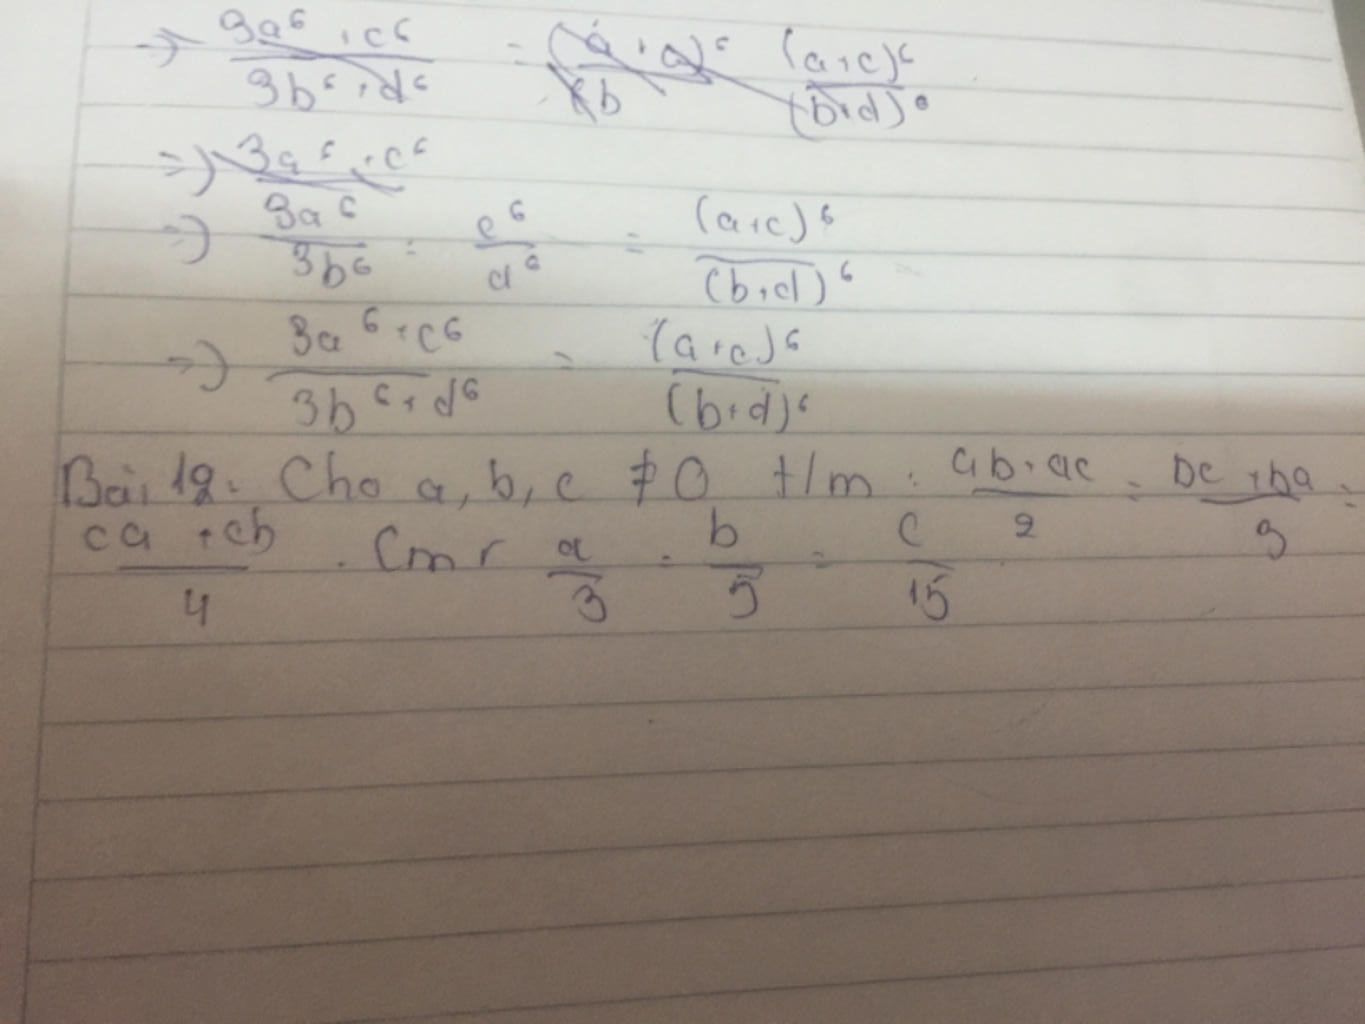 => 3a⁶ + c⁶ / 3b⁶ + d⁶ = (a + a)⁶ / (b (a+c)⁶ / (b+d)⁶
=> 3a⁶ + c⁶
=> 3a⁶ / 3b⁶ = c⁶ / d⁶ = (a+c)⁶ / (b+d)⁶
=> 3a⁶ + c⁶ / 3b⁶ + d⁶ = (a+c)⁶ / (b+d)⁶
Bài 12. Cho a, b, c ≠ 0 t/m : ab + ac / 2 = bc + ba / 3 =
ca + cb / 4 . Cmr a / 3 = b / 5 = c / 15